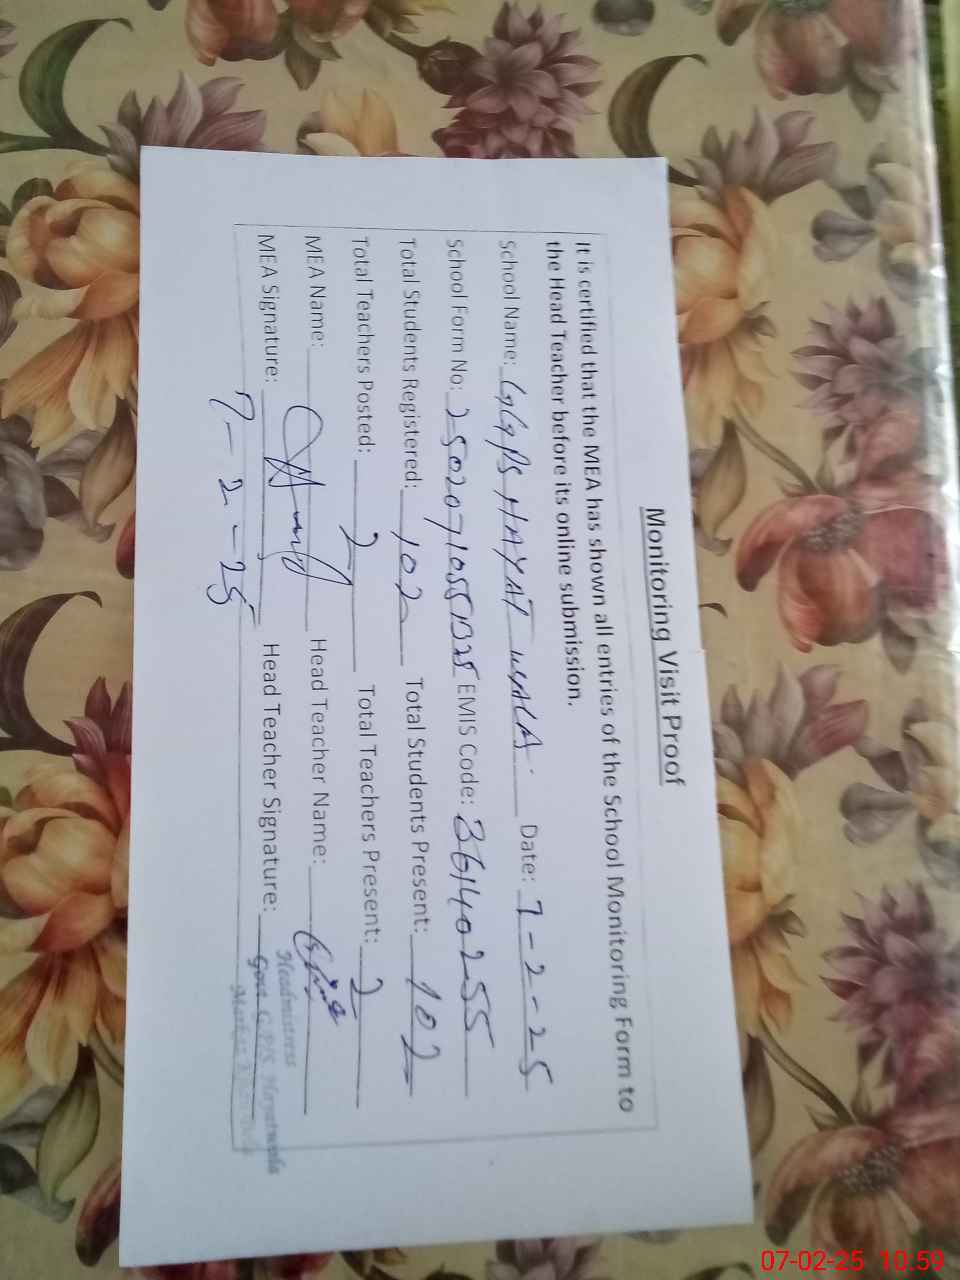 Monitoring Visit Proof
It is certified that the MEA has shown all entries of the School Monitoring Form to
the Head Teacher before its online submission.
School Name: GGPS HAYAT WALA. Date: 7-2-25
School Form No: EMIS Code: 36140255
Total Students Registered: 102 Total Students Present: 102
Total Teachers Posted: 2 Total Teachers Present: 2
MEA Name: Head Teacher Name:
MEA Signature: Head Teacher Signature:
7-2-25
Headmistress
Govt. G.P/S Hayatwala
07-02-25 10:59